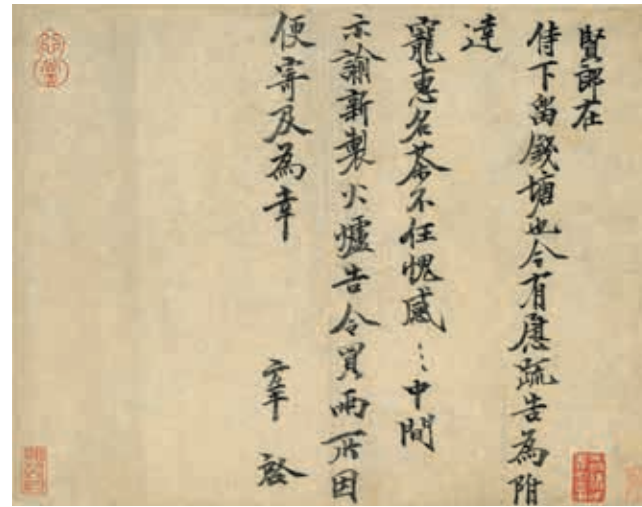 賢郎在
侍下留錢塘也今有慰疏告為附
達
寵惠名茶不任愧感〻中間
示諭新製火爐告令買兩所因
便寄及為幸
啓